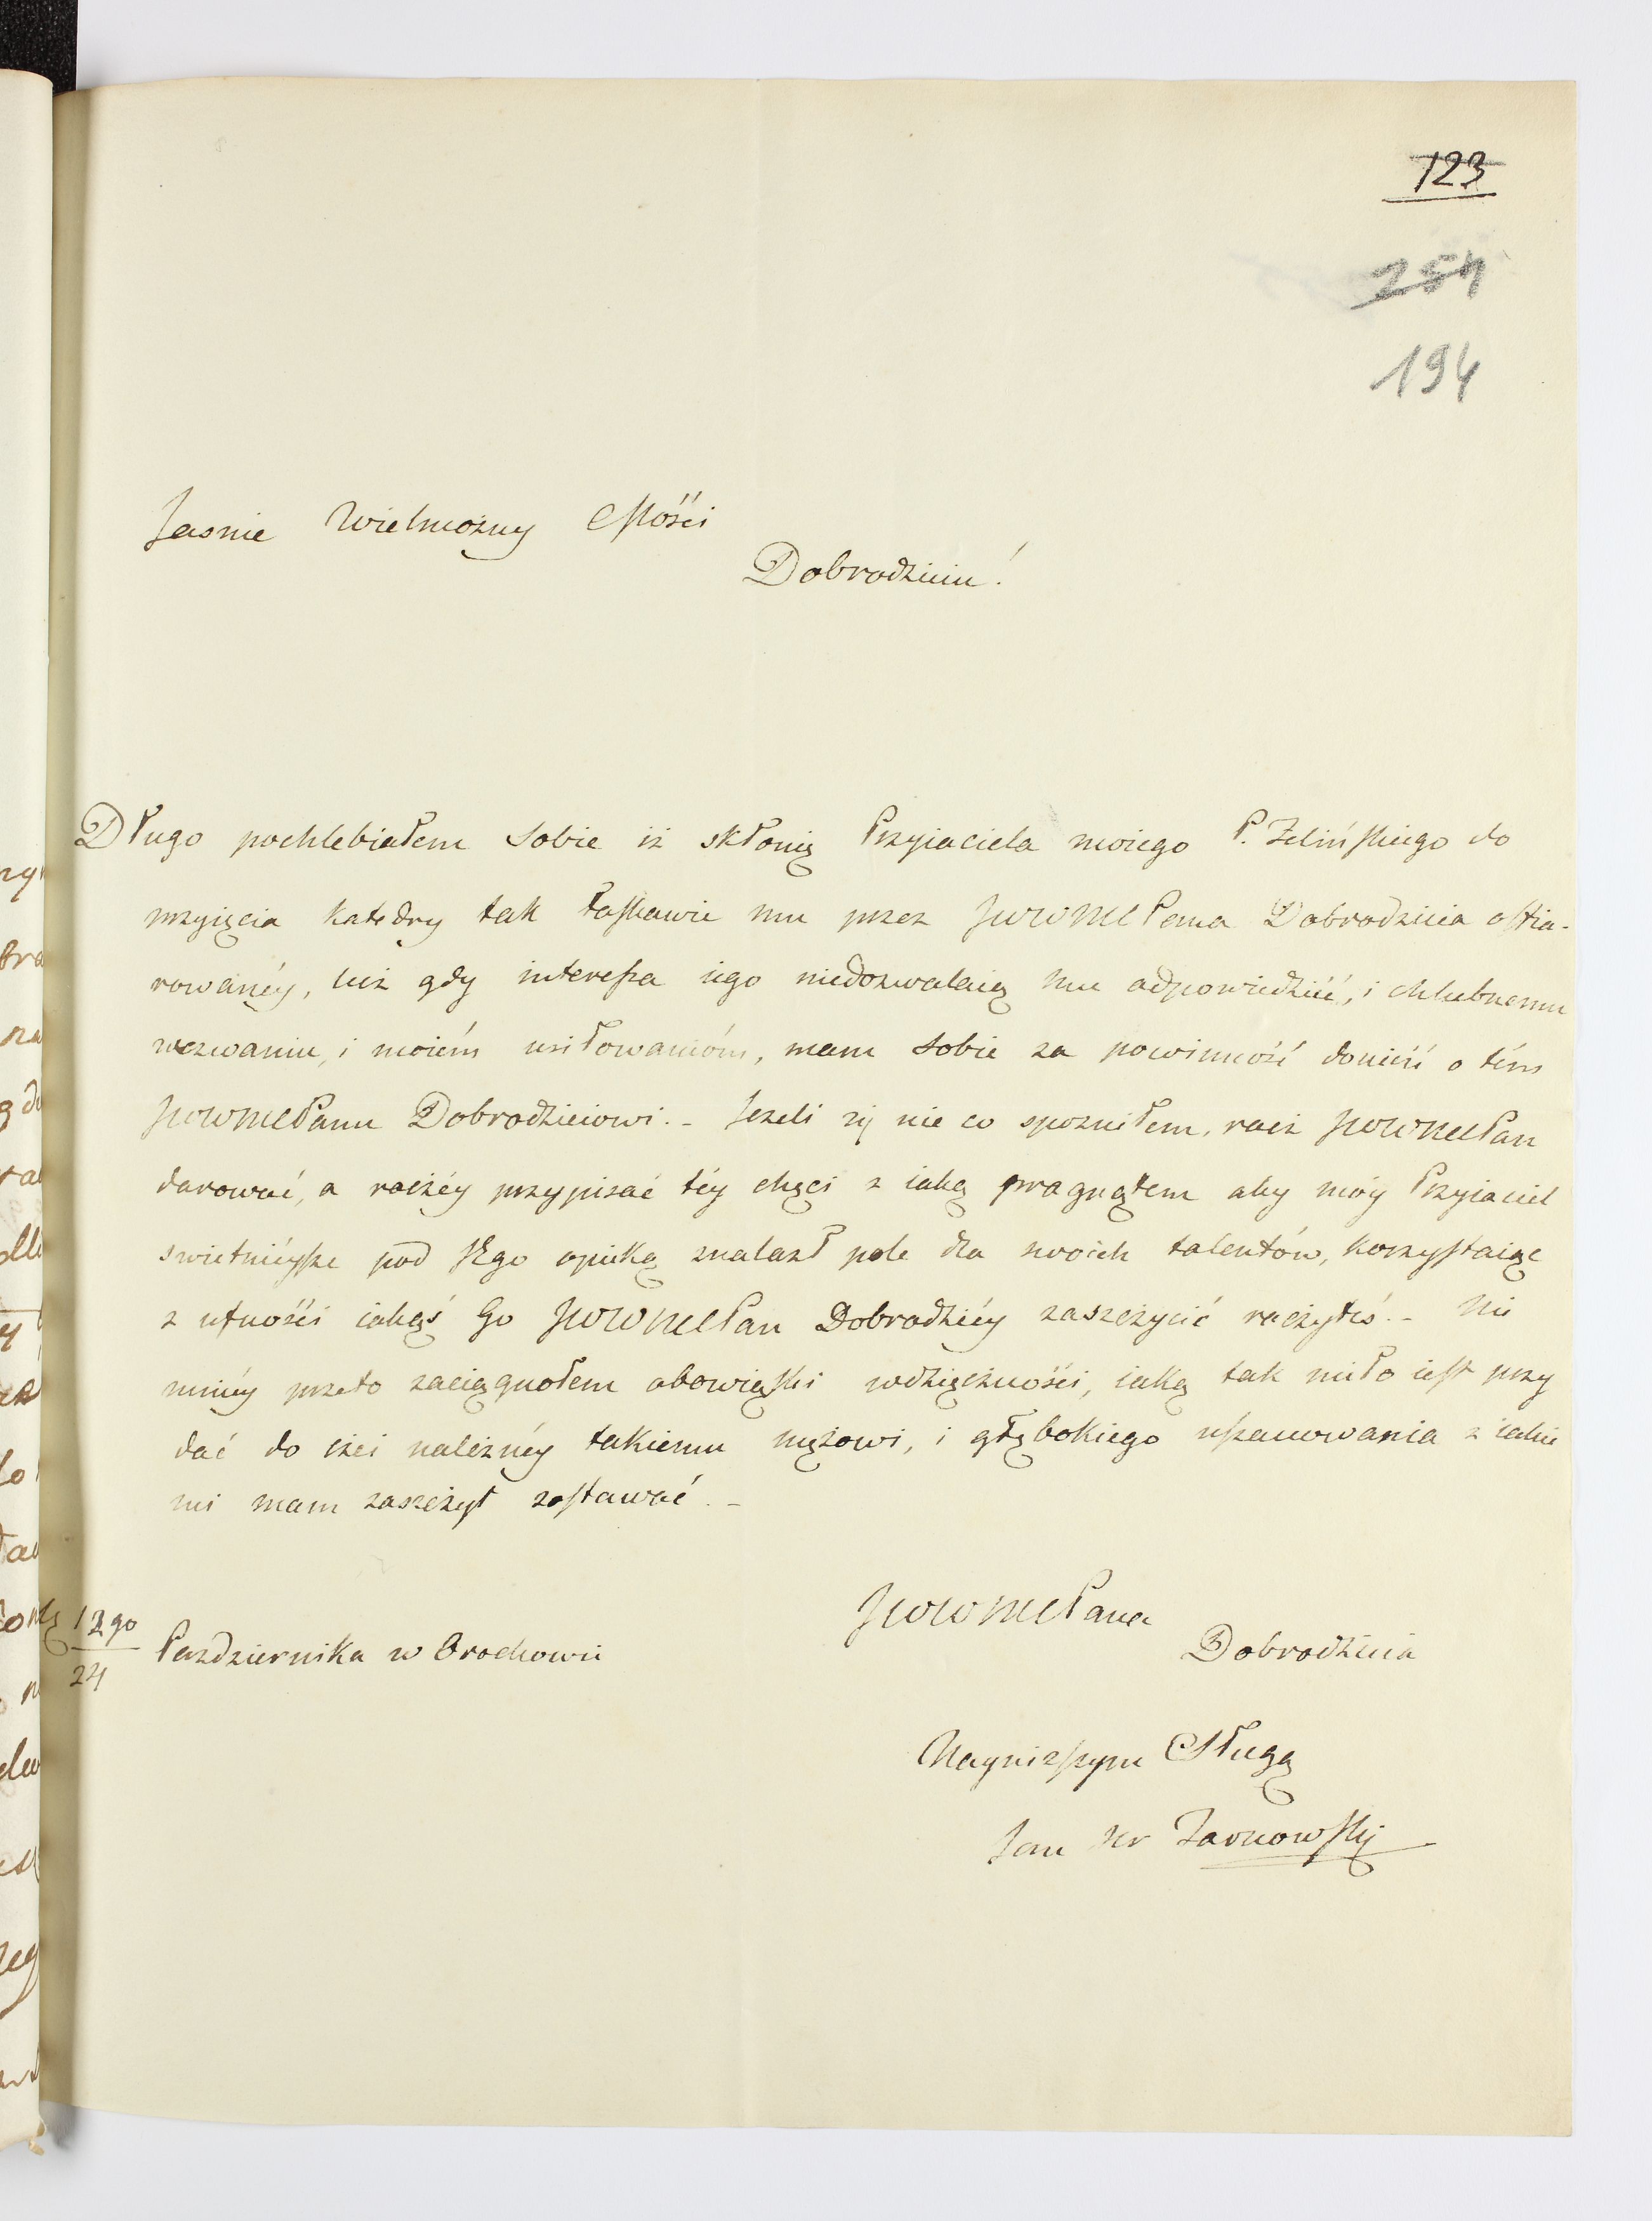 123
254
194
Jasnie Wielmożny Mości
Dobrodzieiu!
Długo pochlebiałem sobie iż skłonię Przyiaciela moiego P. Zelińskiego do
przyięcia Katedry tak łaskawie mu przez JWWMCPana Dobrodzieia ofia-
rowanéy, lecz gdy interessa iego niedozwalaią mu odpowiedzić, i chlubnemu
wezwaniu, i moiém usiłowanióm, mam sobie za powinność donieść o tém
JWWMCPanu Dobrodzieiowi. - Jeżeli się nie co spozniłem, racz JWWMCPan
darować, a raczéy przypisać téy chęci z iaką pragnąłem aby móy Przyiaciel
swietniéysze pod JEgo opieką znalazł pole dla swoich talentów, korzystaiąc
z ufności iakąś Go JWWMCPan Dobrodziéy zaszczycić raczyłeś. - Nie
mniéy przeto zaciągnołem obowiąski wdzięczności, iaką tak miło iest przy
dać do czci należnéy takiemu mężowi, i głębokiego uszanowania z iakie
mi mam zaszczyt zostawać. -
JWWMCPana
Dobrodzieia
12go
24 Pazdziernika w Orochowie
Nayniższym Sługą
Jan Hr Tarnowski